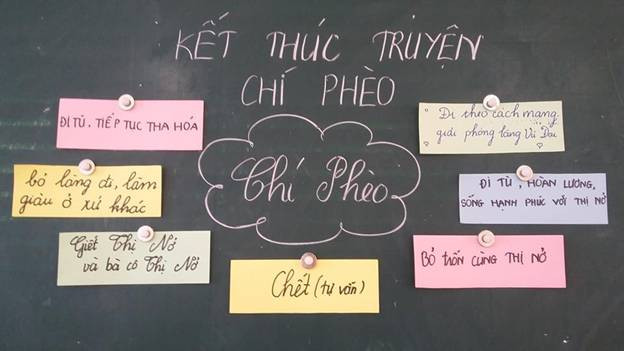 KẾT THÚC TRUYỆN
CHÍ PHÈO
ĐI TÙ, TIẾP TỤC THA HÓA
bỏ làng đi, làm
giàu ở xứ khác
Giết Thị Nở
và bà cô Thị Nở
Chí Phèo
Chết (tự vẫn)
Đi theo cách mạng
giải phóng làng Vũ Đại
ĐI TÙ, HOÀN LƯƠNG,
SỐNG HẠNH PHÚC VỚI THỊ NỞ
BỎ TRỐN CÙNG THỊ NỞ